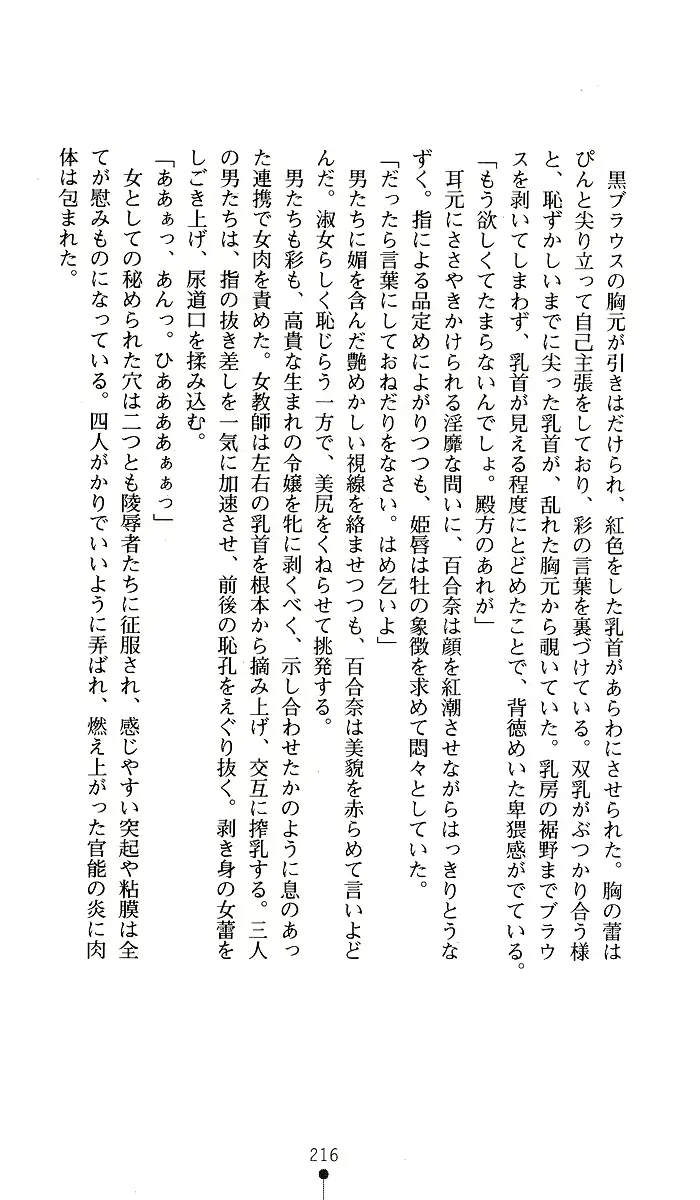 黒ブラウスの胸元が引きはだけられ、紅色をした乳首があらわにさせられた。胸の蕾は
ぴんと尖り立って自己主張をしており、彩の言葉を裏づけている。双乳がぶつかり合う様
と、恥ずかしいまでに尖った乳首が、乱れた胸元から覗いていた。乳房の裾野までブラウ
スを剥いてしまわず、乳首が見える程度にとどめたことで、背徳めいた卑猥感がでている。
「もう欲しくてたまらないんでしょ。殿方のあれが」
耳元にささやきかけられる淫靡な問いに、百合奈は顔を紅潮させながらはっきりとうな
ずく。指による品定めによがりつつも、姫唇は牡の象徴を求めて悶々としていた。
「だったら言葉にしておねだりをなさい。はめ乞いよ」
男たちに媚を含んだ艶めかしい視線を絡ませつつも、百合奈は美貌を赤らめて言いよど
んだ。淑女らしく恥じらう一方で、美尻をくねらせて挑発する。
男たちも彩も、高貴な生まれの令嬢を牝に剥くべく、示し合わせたかのように息のあっ
た連携で女肉を責めた。女教師は左右の乳首を根本から摘み上げ、交互に搾乳する。三人
の男たちは、指の抜き差しを一気に加速させ、前後の恥孔をえぐり抜く。剥き身の女蕾を
しごき上げ、尿道口を揉み込む。
「ああぁっ、あんっ。ひああああぁぁっ」
女としての秘められた穴は二つとも陵辱者たちに征服され、感じやすい突起や粘膜は全
てが慰みものになっている。四人がかりでいいように弄ばれ、燃え上がった官能の炎に肉
体は包まれた。
216